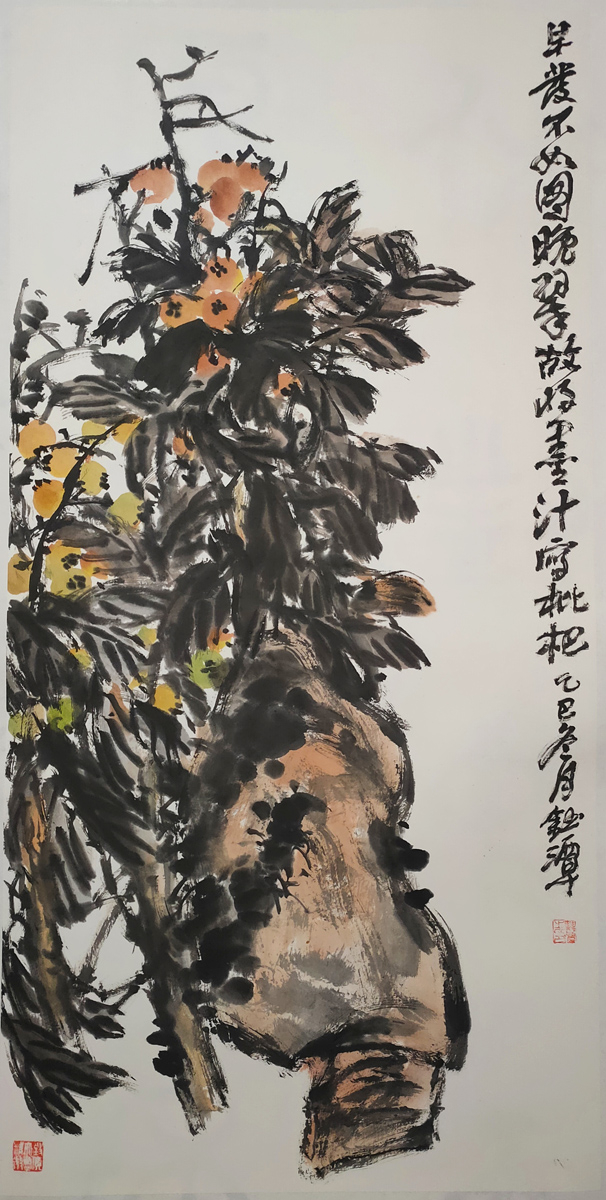 早发不如图晚翠故将墨汁写枇杷乙巳冬月钴潭